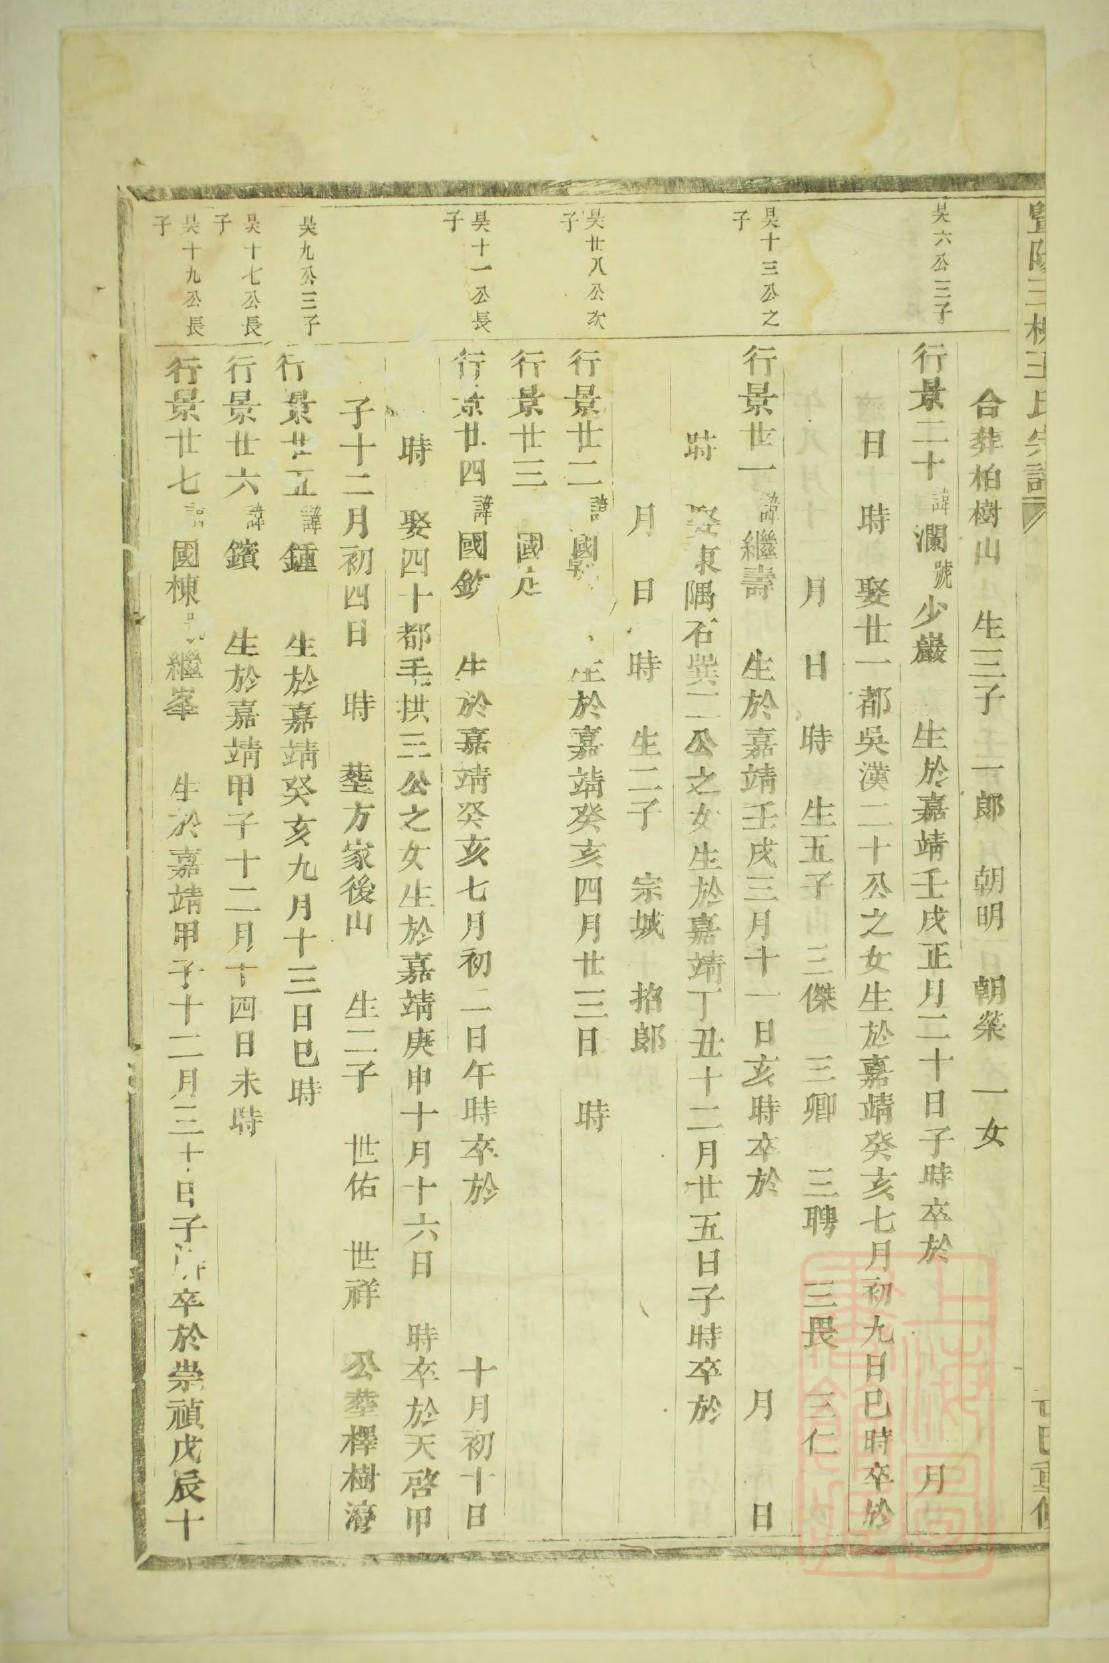 合葬柏樹山 生三子 一郎 朝明 朝榮 一女
昊六公三子
行景二十諱瀾號少巖 生於嘉靖壬戌正月二十日子時卒於 月
日 時 娶廿一都吳漢二十公之女生於嘉靖癸亥七月初九日巳時卒於
月 日 時 生五子 三傑 三卿 三聘 三畏 三仁
昊十三公之子
行景廿一諱繼壽 生於嘉靖壬戌三月十一日亥時卒於 月 日
時 娶東隅石巽二公之女生於嘉靖丁丑十二月廿五日子時卒於
月 日 時 生二子 宗城 招郎
昊廿八公次子
行景廿二諱國 生於嘉靖癸亥四月廿三日 時
行景廿三 國定
昊十一公長子
行景廿四諱國欽 生於嘉靖癸亥七月初二日午時卒於 十月初十日
時 娶四十都毛拱三公之女生於嘉靖庚申十月十六日 時卒於天啓甲
子十二月初四日 時 塟方家後山 生二子 世佑 世祥 公塟檡樹灣
昊九公三子
行景廿五諱鍾 生於嘉靖癸亥九月十三日巳時
昊十七公長子
行景廿六諱鑌 生於嘉靖甲子十二月十四日未時
昊十九公長子
行景廿七諱國棟號繼峯 生於嘉靖甲子十二月三十日子時卒於崇禎戊辰十